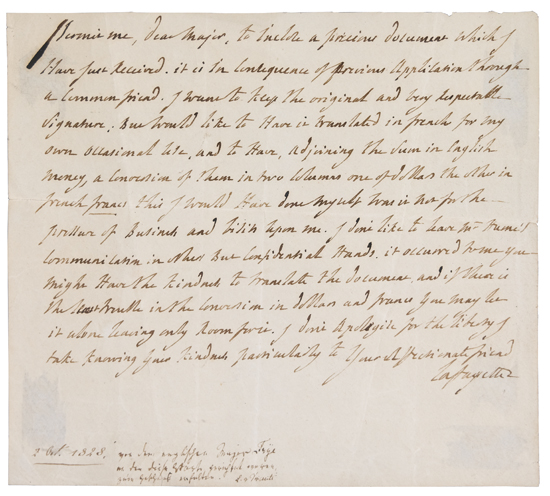 Permit me, dear Major, to inclose a precious document which I
Have just Received. it is in Consequence of previous Application through
a Common friend. I want to Keep the original and very respectable
Signature, But would like to Have it translated in french for my
own occasional Use, and to Have, adjoining the Sum in English
money, a Conversion of them in two Columns one of dollars the other in
french francs this I would Have done myself was it not for the
pressure of Business and visits upon me. I don't like to leave Mr Hume's
Communication in other But Confidential Hands. it occurred to me you
might Have the Kindness to translate the document, and if there is
the least trouble in the Conversion in dollars and francs you may let
it alone leaving only Room for it. I don't Apologize for the liberty I
take Knowing your Kindness particularly to Your Affectionate friend
Lafayette
2 Oct. 1828. von dem englischen Major Frye
an den diese
zum Geschenk erhalten.